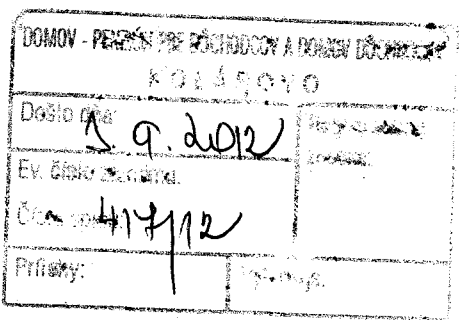 DOMOV - PENZIÓN PRE DÔCHODCOV A DOMOV DÔCHODCOV
KOLÁROVO
Došlo dňa: 3. 9. 2012
Ev. číslo záznamu:
Číslo 417/12
Prílohy: